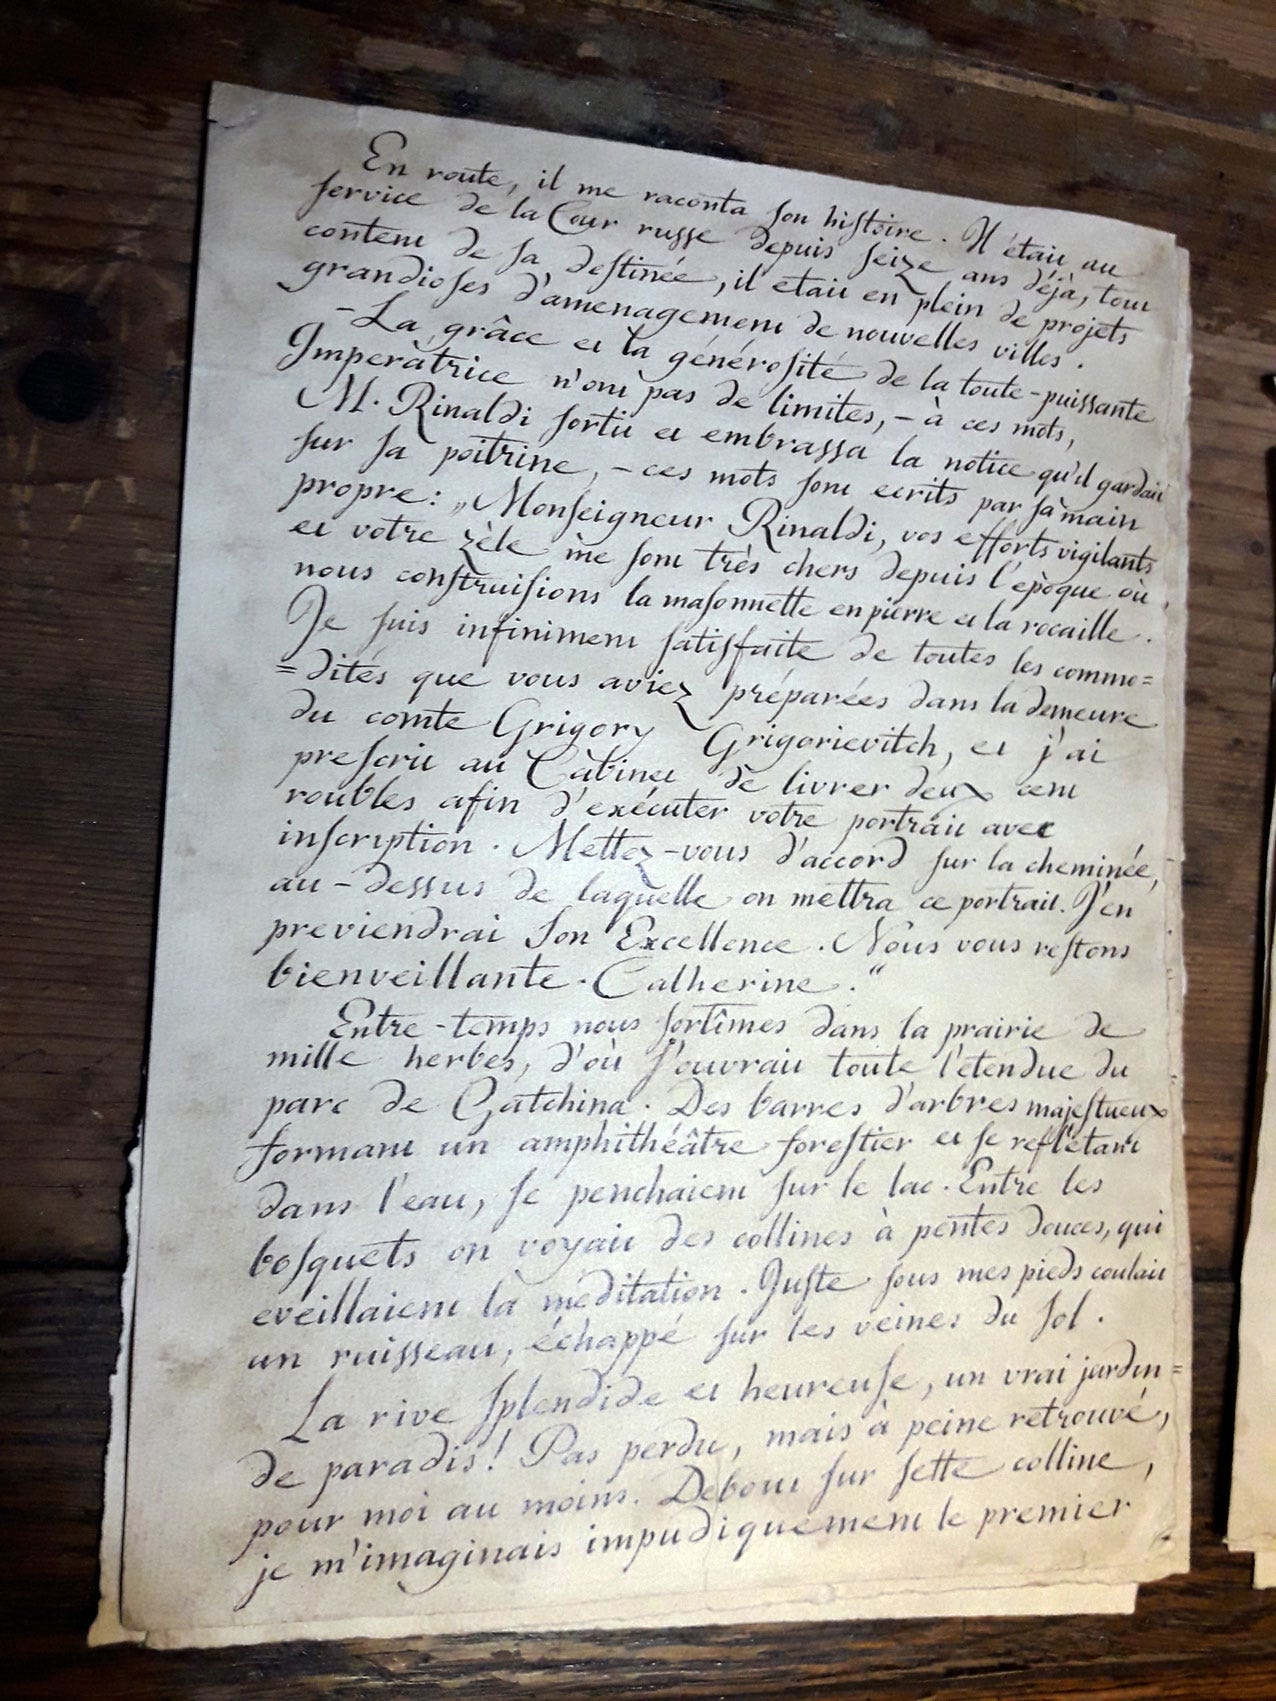 En route, il me raconta son histoire. Il était au
service de la Cour russe depuis seize ans déjà, tout
content de sa destinée, il etait en plein de projets
grandioses d'amenagement de nouvelles villes.
- La grâce et la générosité de la toute-puissante
Imperàtrice n'ont pas de limites, - à ces mots,
M. Rinaldi sortit et embrassa la notice qu'il gardait
sur sa poitrine, - ces mots sont ecrits par sa main
propre: „Monseigneur Rinaldi, vos efforts vigilants
et votre zèle me sont très chers depuis l'epòque où
nous construisions la masonnette en pierre et la rocaille.
Je suis infiniment satisfaite de toutes les commo=
=dités que vous aviez préparées dans la demeure
du comte Grigory Grigorievitch, et j'ai
prescrit au Cabinet de livrer deux cent
roubles afin d'exécuter votre portrait avec
inscription. Mettez-vous d'accord sur la cheminée,
au-dessus de laquelle on mettra ce portrait. J'en
previendrai Son Excellence. Nous vous restons
bienveillante. Catherine.“
Entre-temps nous sortîmes dans la prairie de
mille herbes, d'où s'ouvrait toute l'etendue du
parc de Gatchina. Des barres d'arbres majestueux
formant un amphithéâtre forestier et se reflétant
dans l'eau, se penchaient sur le lac. Entre les
bosquets on voyait des collines à pentes douces, qui
eveillaient la meditation. Juste sous mes pieds coulait
un ruisseau, échappé sur les veines du sol.
La rive splendide et heureuse, un vrai jardin=
de paradis! Pas perdu, mais à peine retrouvé,
pour moi au moins. Debout sur sette colline,
je m'imaginais impudiquement le premier